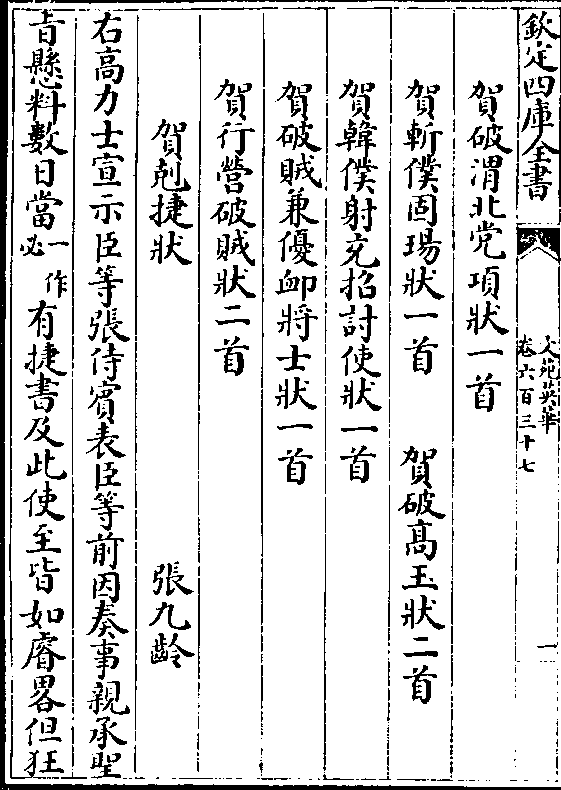 欽定四庫全書
文苑英華
卷六百三十七
一
賀破渭北党項狀一首
賀斬僕固瑒狀一首 賀破髙玉狀二首
賀韓僕射充招討使狀一首
賀破賊兼優䘏將士狀一首
賀行營破賊狀二首
賀剋捷狀 張九齡
右高力士宣示臣等張侍賔表臣等前因奏事親承聖
㫖懸料數日當一作必有捷書及此使至皆如睿畧但狂